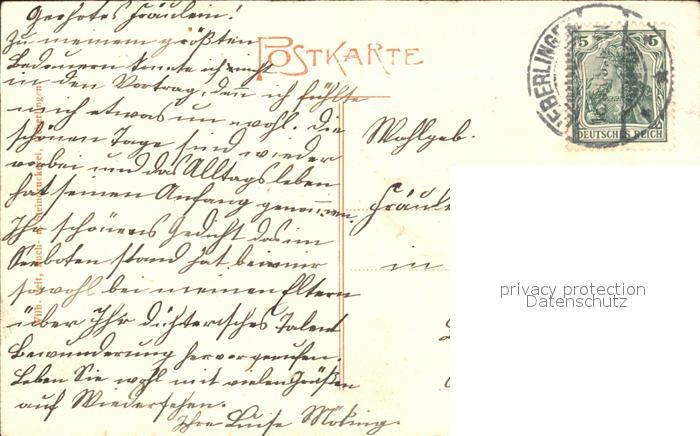 Geehrtes Fräulein!
Zu meinem größten
Bedauern konnte ich nicht
in den Vortrag, denn ich fühlte
mich etwas unwohl. Die
schönen Tage sind wieder
vorbei und das Alltagsleben
hat seinen Anfang genommen.
Ihr schönes Gedicht das im
Seeboten stand hat bei mir
sowohl bei meinen Eltern
über Ihr dichterisches Talent
Bewunderung hervorgerufen.
Leben Sie wohl mit vielen Grüßen
auf Wiedersehen.
Ihre Luise
POSTKARTE
UEBERLINGEN
5 5
DEUTSCHES REICH
Wohlgeb.
Fräulein
in
privacy protection
Datenschutz